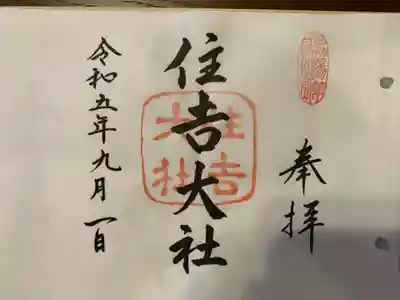 奉拝
住吉大社
住吉大社
令和五年九月一日